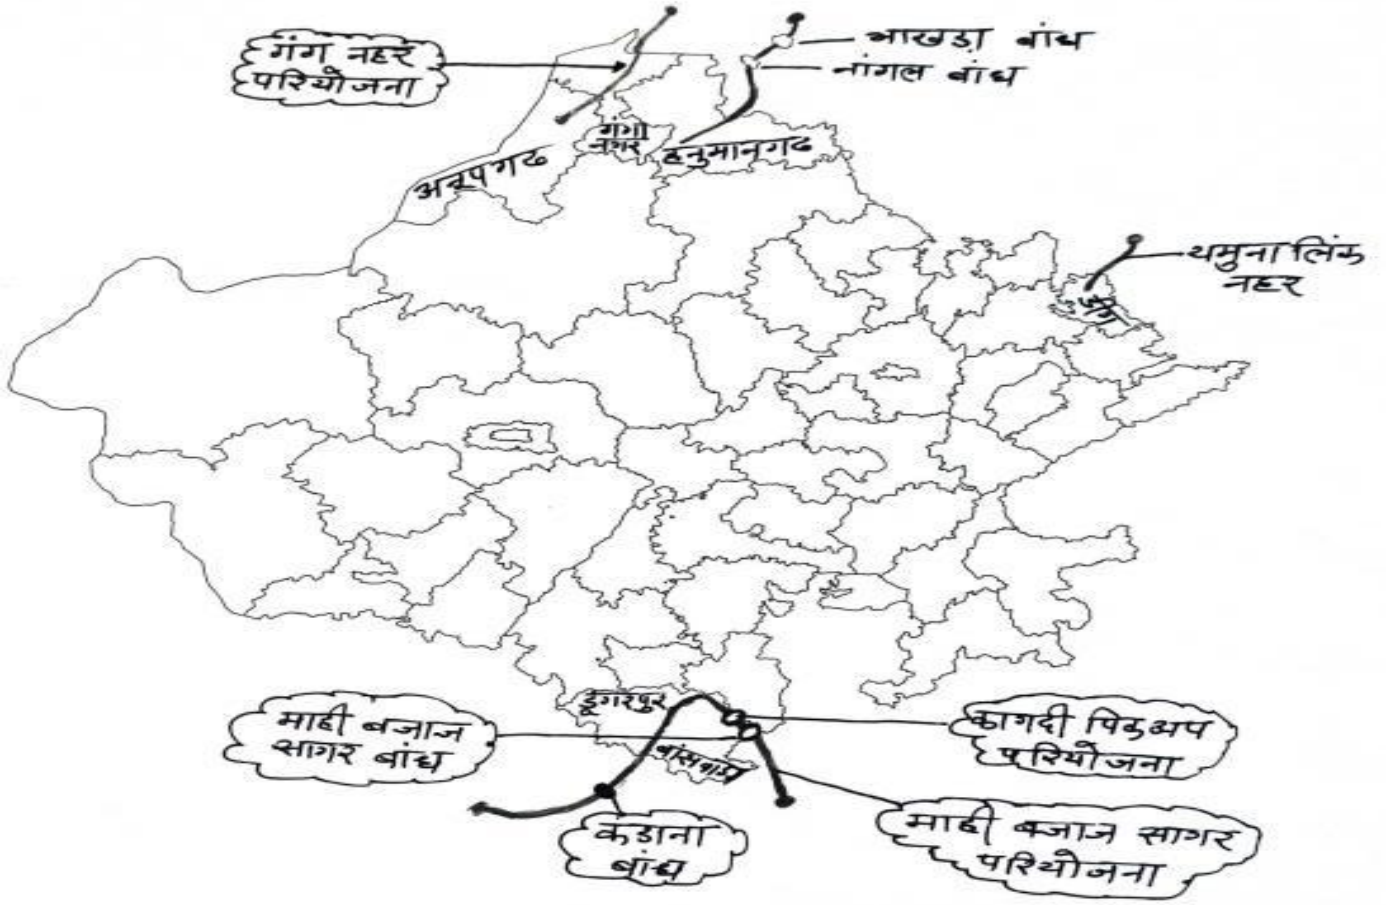 गंग नहर
परियोजना
भाखडा बांध
नांगल बांध
गंगा
नगर
हनुमानगढ
अनूपगढ
यमुना लिंक
नहर
डूंगरपुर
माही बजाज
सागर बांध
कागदी पिकअप
परियोजना
बांसवाडा
कडाना
बांध
माही बजाज सागर
परियोजना